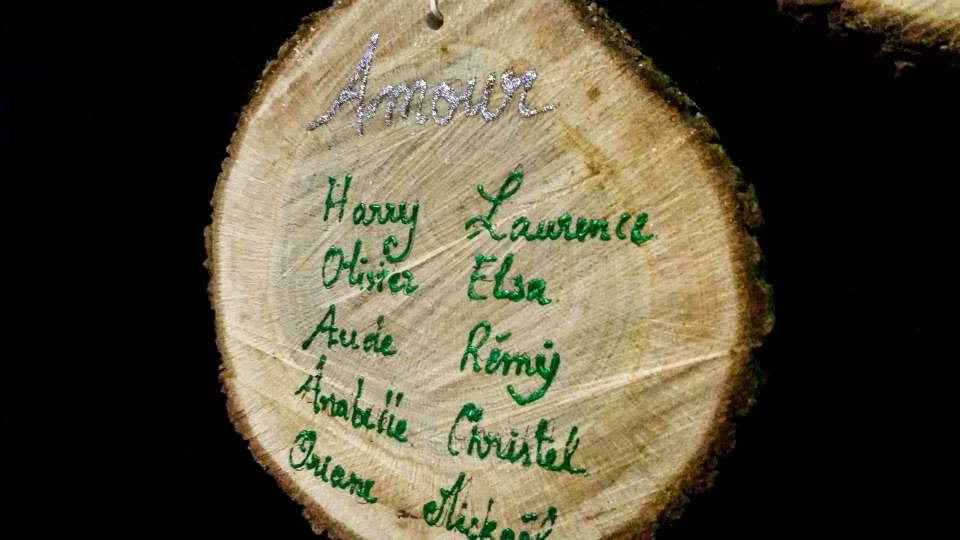 Amour
Harry Laurence
Olivier Elsa
Aude Rémy
Anabelle Christel
Oriane Mickaël